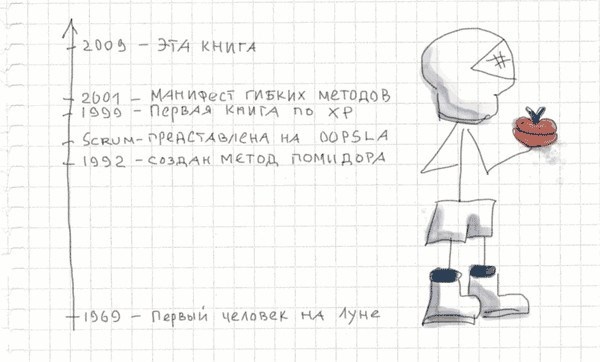 2009 – ЭТА КНИГА
2001 – МАНИФЕСТ ГИБКИХ МЕТОДОВ
1999 – ПЕРВАЯ КНИГА ПО XP
SCRUM – ПРЕДСТАВЛЕНА НА OOPSLA
1992 – СОЗДАН МЕТОД ПОМИДОРА
1969 – ПЕРВЫЙ ЧЕЛОВЕК НА ЛУНЕ
#